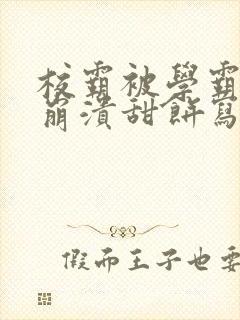 校霸被學霸
崩潰甜餅寫
假而王子也要